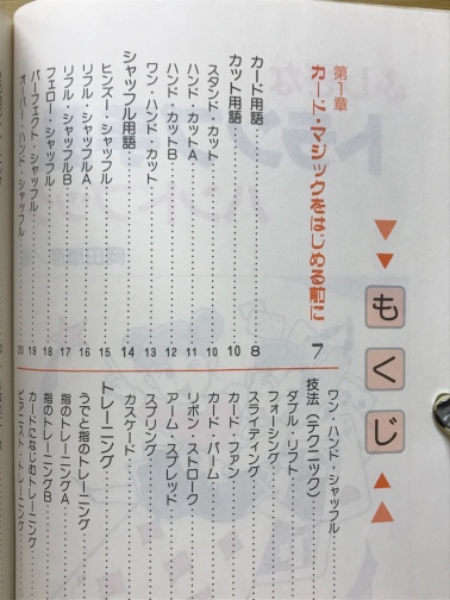 もくじ
第1章
カード・マジックをはじめる前に 7
カード用語 8
カット用語 10
スタンド・カット 10
ハンド・カットA 11
ハンド・カットB 12
ワン・ハンド・カット 13
シャッフル用語 14
ヒンズー・シャッフル 15
リフル・シャッフルA 16
リフル・シャッフルB 17
フェロー・シャッフル 18
パーフェクト・シャッフル 19
オーバー・ハンド・シャッフル 20
ワン・ハンド・シャッフル
技法(テクニック)
ダブル・リフト
フォーシング
スライディング
カード・ファン
カード・パーム
リボン・ストローク
アーム・スプレッド
スプリング
カスケード
トレーニング
うでと指のトレーニング
指のトレーニングA
指のトレーニングB
カードになじむトレーニング
ピアニスト・トレーニング